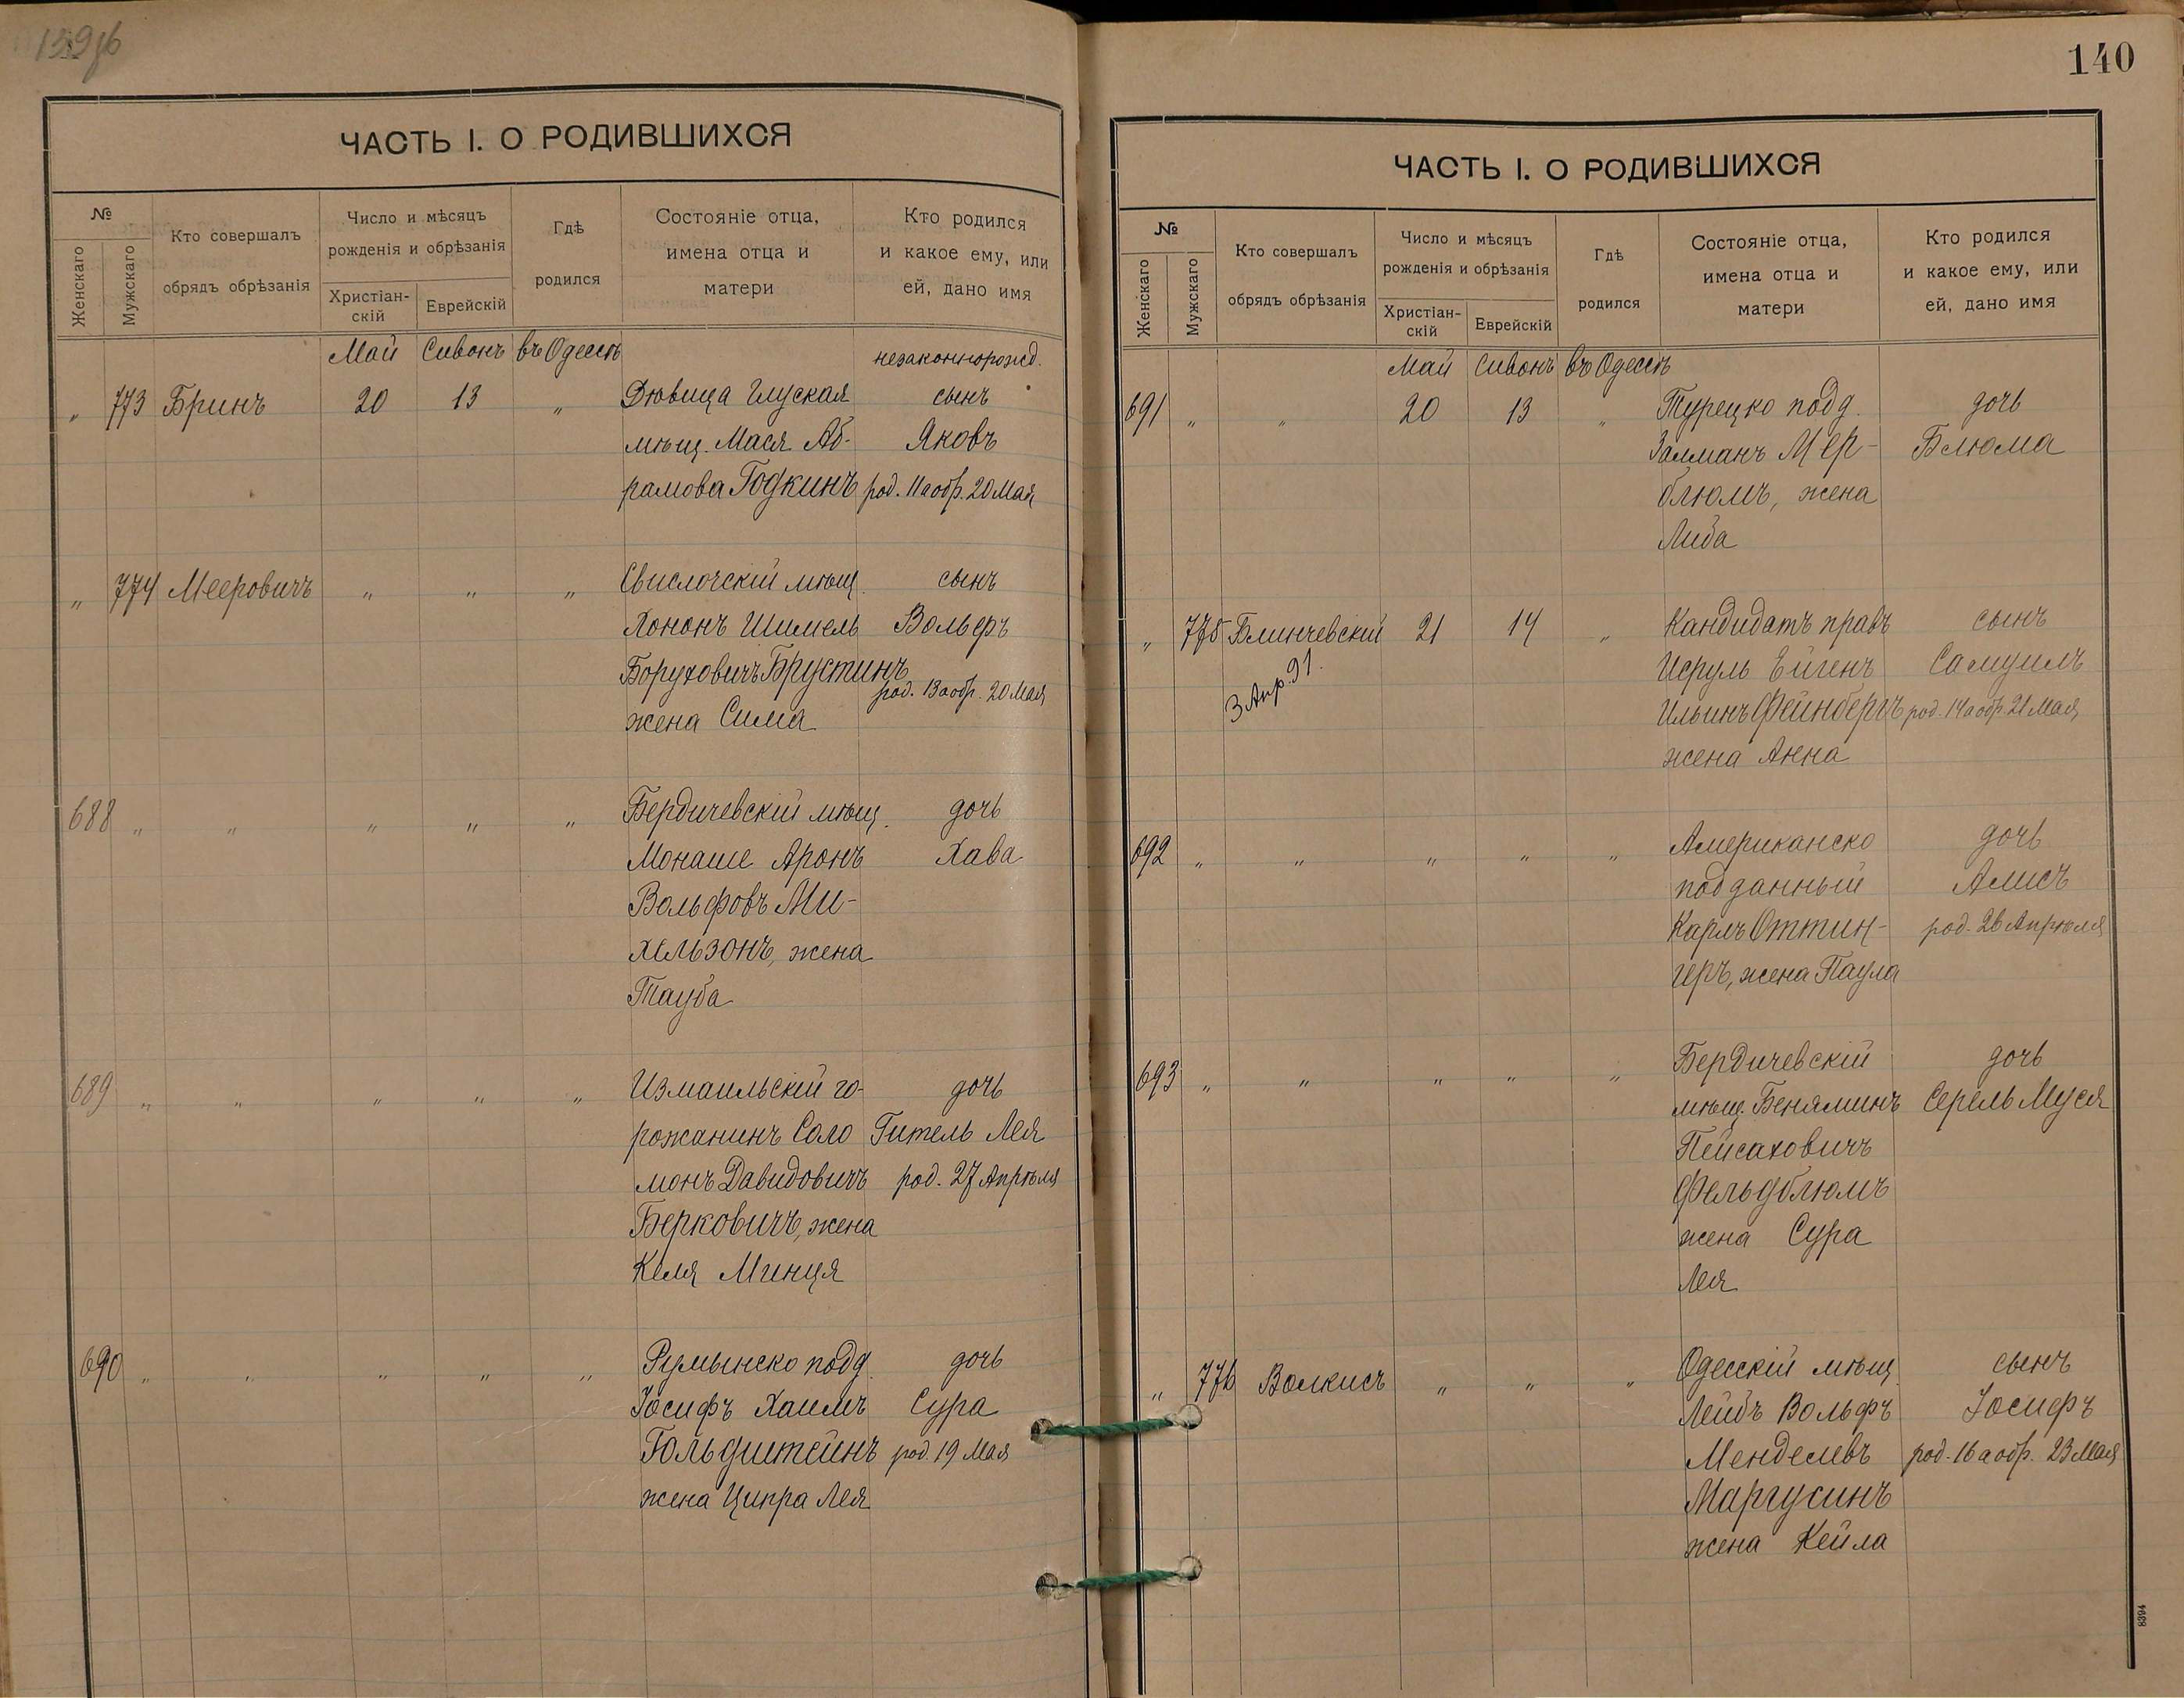 139об
ЧАСТЬ I. О РОДИВШИХСЯ
№
Женскаго
Мужскаго
Кто совершалъ
обрядъ обрѣзанія
Число и мѣсяцъ
рожденія и обрѣзанія
Христіан-
скій
Еврейскій
Гдѣ
родился
Состояніе отца,
имена отца и
матери
Кто родился
и какое ему, или
ей, дано имя
Май Сивонъ въ Одессѣ незаконнорожд.
„ 773 Бринъ 20 13 „ Дѣвица Глуская сынъ
мѣщ. Мася Аб- Яковъ
рамова Годкинъ род. 11 а обр. 20 Мая
„ 774 Мееровичъ „ „ „ Свислочскій мѣщ. сынъ
Хононъ Шимель Вольфъ
Боруховичъ Брустинъ
род. 13 а обр. 20 Мая
жена Сима
688 „ „ „ „ „ Бердичевскій мѣщ. дочь
Монаше Аронъ Хава
Вольфовъ Ми-
хельзонъ, жена
Тауба
689 „ „ „ „ „ Измаильскій го- дочь
рожанинъ Соло Гитель Лея
монъ Давидовичъ род. 27 Апрѣля
Берковичъ, жена
Келя Минця
690 „ „ „ „ „ Румынско подд. дочь
Іосифъ Хаимъ Сура
Гольдштейнъ род. 19 Мая
жена Ципра Лея
140
ЧАСТЬ I. О РОДИВШИХСЯ
№
Женскаго
Мужскаго
Кто совершалъ
обрядъ обрѣзанія
Число и мѣсяцъ
рожденія и обрѣзанія
Христіан-
скій
Еврейскій
Гдѣ
родился
Состояніе отца,
имена отца и
матери
Кто родился
и какое ему, или
ей, дано имя
Май Сивонъ въ Одессѣ
691 „ „ 20 13 „ Турецко подд. дочь
Залманъ Мер- Блюма
блюмъ, жена
Либа
„ 775 Блинчевскій 21 14 „ Кандидатъ правъ сынъ
3 Апр. 91.
Исруль Ейгенъ Самуилъ
Ильинъ Фейнбергъ род. 14 а обр. 21 Мая
жена Анна
692 „ „ „ „ „ Американско дочь
подданный Алисъ
Карлъ Оттин- род. 26 Апрѣля
геръ, жена Паула
693 „ „ „ „ „ Бердичевскій дочь
мѣщ. Беняминъ Серель Муся
Пейсаховичъ
Фельдблюмъ
жена Сура
Лея
„ 776 Волкисъ „ „ „ Одесскій мѣщ. сынъ
Лейбъ Вольфъ Іосифъ
Менделевъ род. 16 а обр. 23 Мая
Маргусинъ
жена Кейла
8394